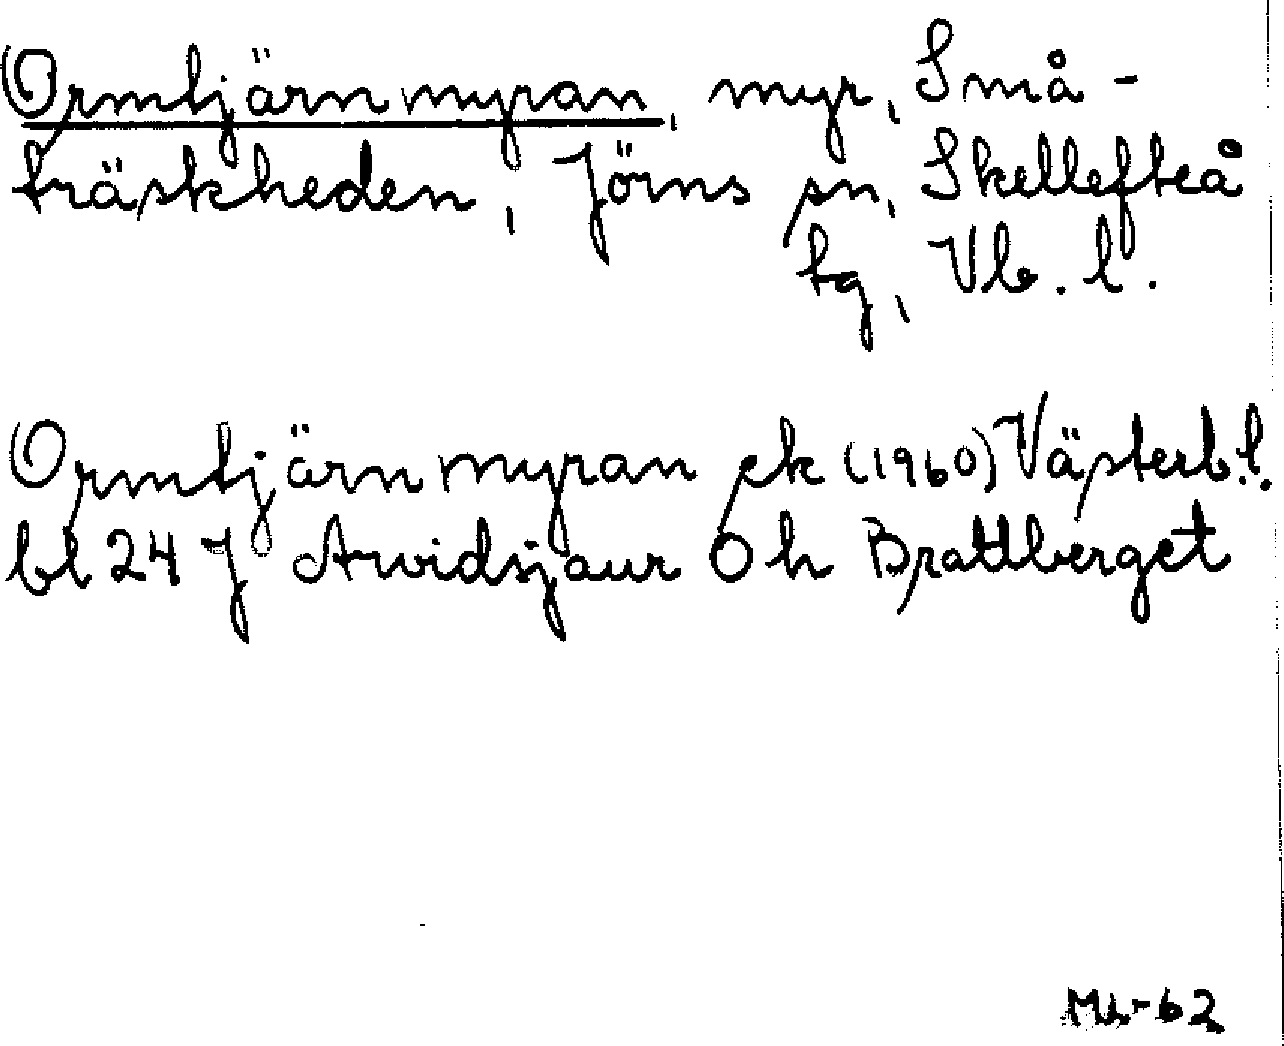 Ormtjärnmyran, myr, Små-
träskheden, Jörns sn, Skellefteå
tg, Vb. l.
Ormtjärnmyran ek (1960) Västerb.l.
bl 24 J Arvidsjaur O h Brattberget